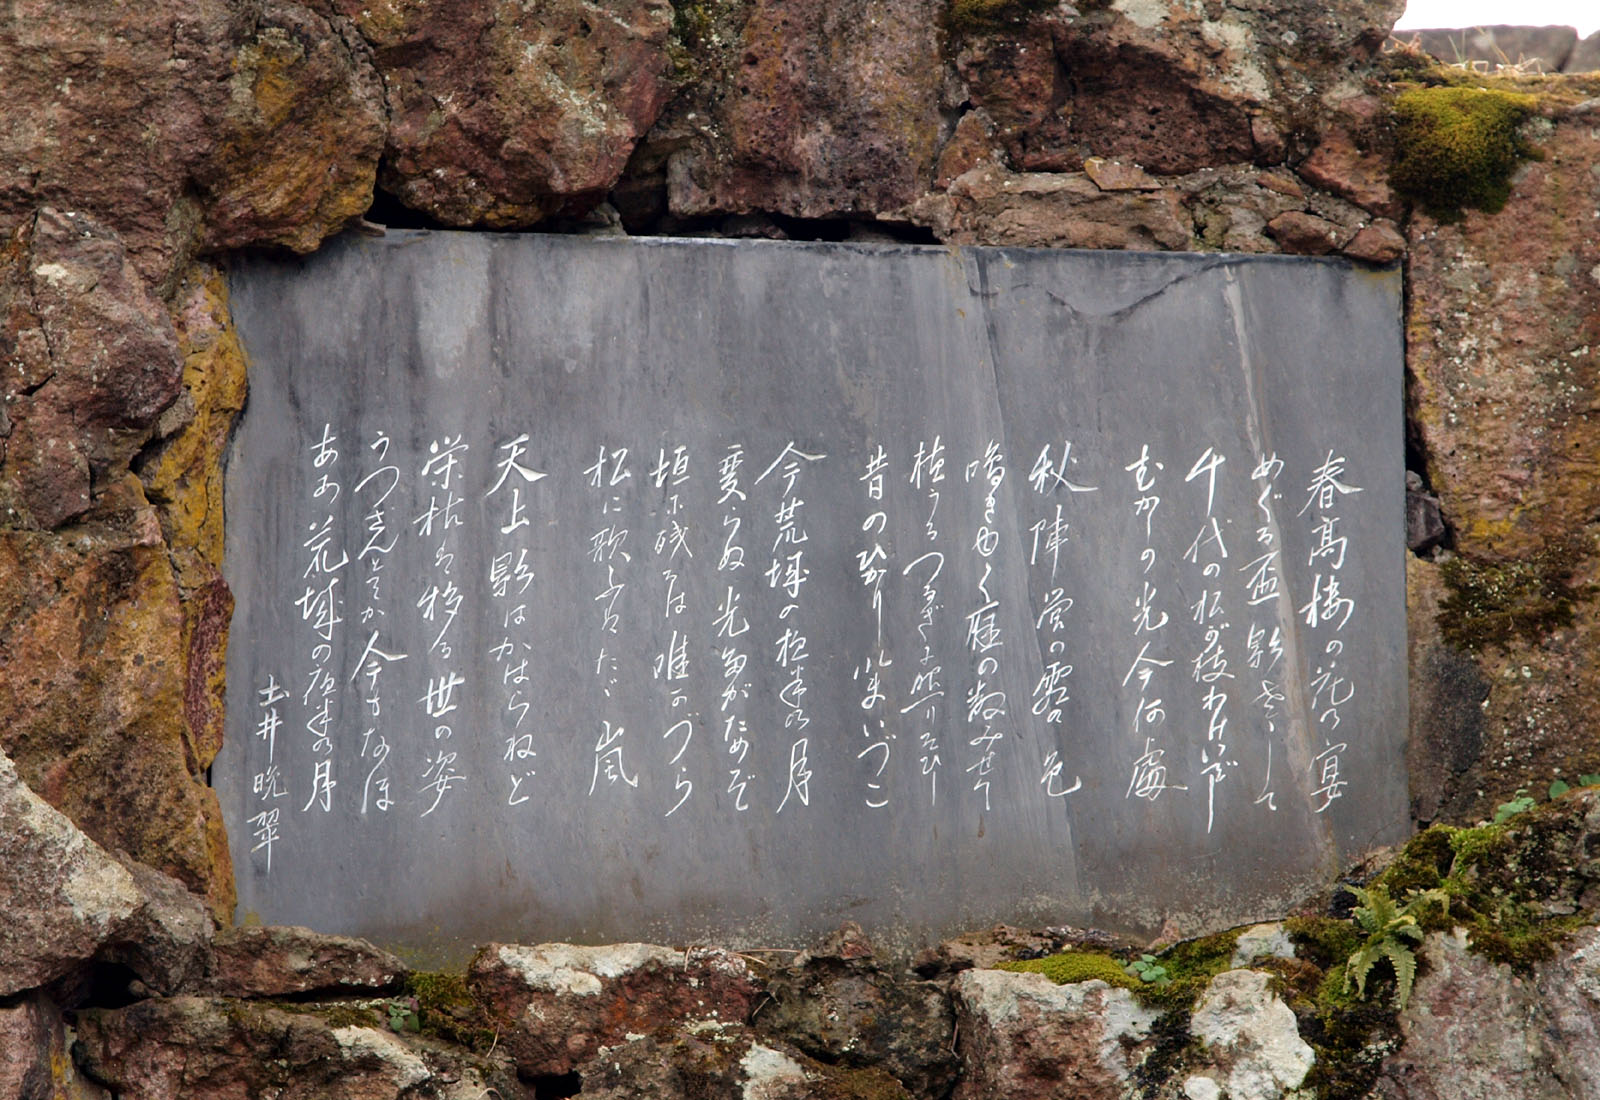 春高楼の花の宴
めぐる盃影さして
千代の松が枝わけいでし
むかしの光今何処
秋陣営の霜の色
鳴きゆく雁の数みせて
植うるつるぎに照りそひし
昔のひかり今いづこ
今荒城の夜半の月
変らぬ光誰がためぞ
垣に残るは唯かづら
松に歌ふはただ嵐
天上影はかはらねど
栄枯は移る世の姿
うつさんとてか今もなほ
ああ荒城の夜半の月
土井晩翠